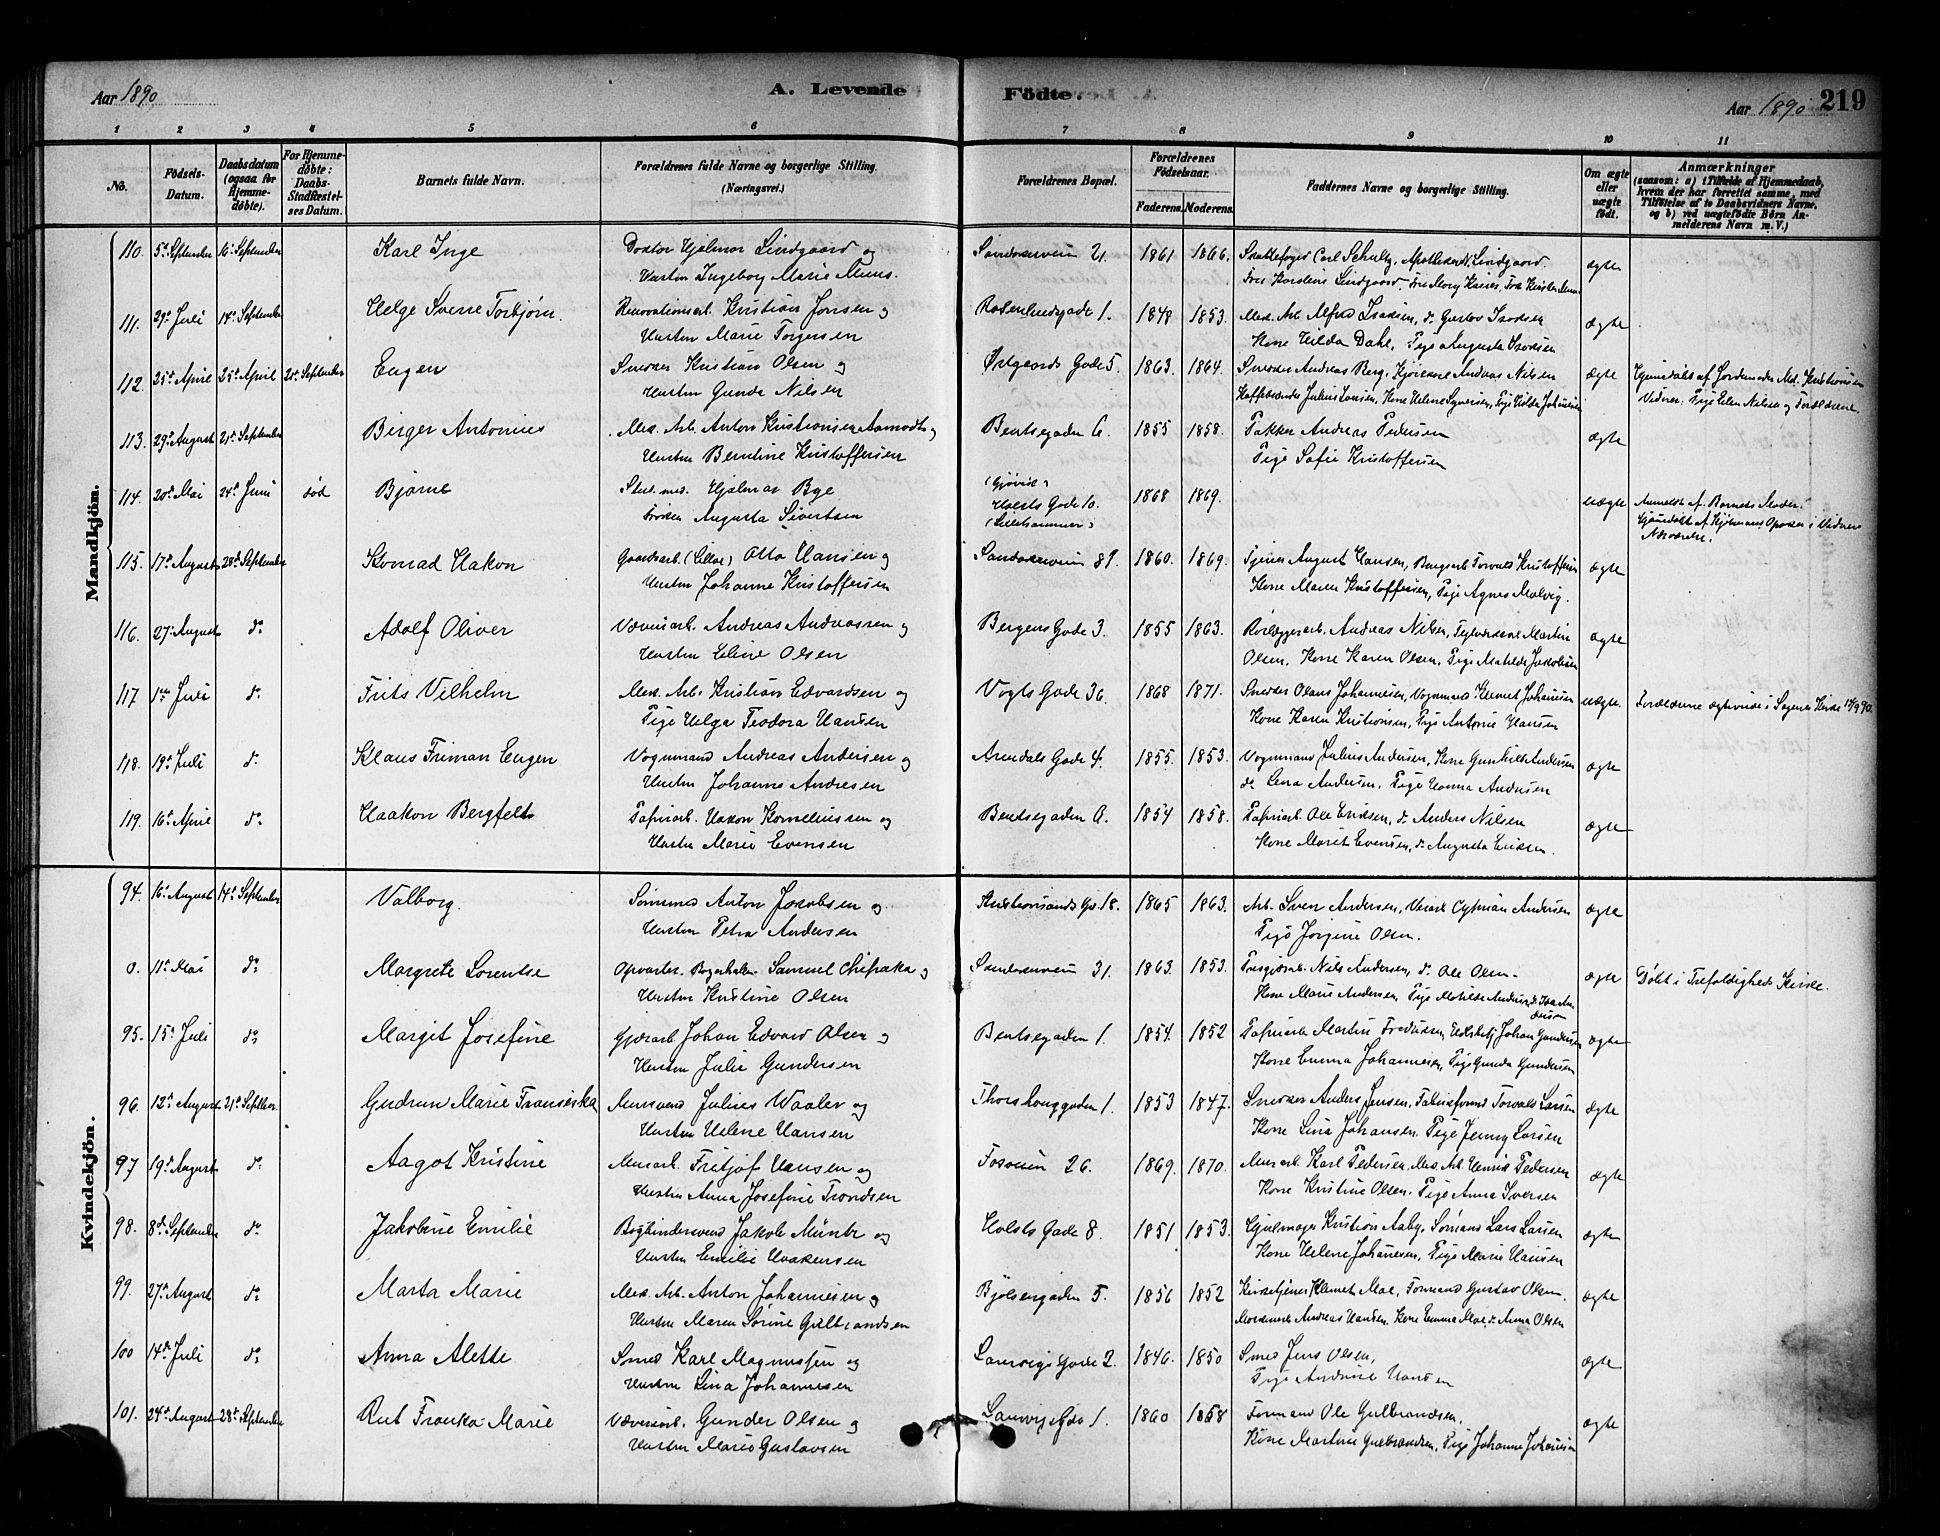 Aar 1890
A. Levende
Födte.
Aar 1890
219
1 2 3 4 5 6 7 8 9 10 11
No. Födsels-Datum. Daabsdatum (ogsaa for Hjemme-döbte). For Hjemme-döbte: Daabs-Stadfæstel-ses Datum. Barnets fulde Navn. Forældrenes fulde Navne og borgerlige Stilling. (Næringsvei.) Forældrenes Bopæl. Forældrenes Födselsaar. Faderens. Moderens. Faddernes Navne og borgerlige Stilling. Om ægte eller uægte födt. Anmærkninger (saasom: a) i Tilfælde af Hjemmedaab, hvem der har forrettet samme, med Tilföielse af to Daabsvidners Navne, og b) ved uægtefödte Börn An-melderens Navn m. V.)
Mandkjön.
110. 5te September 16de September Karl Inge Doktor Hjalmar Lindgaard og Sandakerveien 21. 1861 1866. Carl Schultz, Apotheker Lindgaard. ægte
Hustru Ingeborg Marie Frk Karoline Lindgaard
111. 29de Juli 14de September Helge Sverre Torbjørn. Renovationsarb. Kristian Jonsen og Rosenlundgade 1. 1848 1853. Mek. Arb. Alfred Isaksen, do Gustav Isaksen ægte
Hustru Marie Torgersen Kone Hilda Dahl, Pige Augusta Isaksen
112. 25de April 25de April 21de September Eugen Snedker Kristian Olsen og Østgaards Gade 5. 1863. 1864. Snedker Andreas Berg, Andreas Nilsen ægte Hjemdøbt af Jordemoder Md. Kristiansen
Hustru Gunda Nilsen Julius Iversen, Kone Helene Syversen, Pige Hilda Johansen Vidner: Pige Elen Nilsen og Forældrene.
113. 29de August 21de September Birger Antonius Mek. Arb. Anton Kristiansen Aamodt og Bentsegaden 6. 1855 1858. Pakker Andreas Pedersen ægte
Hustru Berntine Kristoffersen Pige Sofie Kristoffersen
114. 20de Mai 24de Juni død Bjarne Stud. med. Hjalmar Bye (Gjøvik) 1868 1869. uægte Anmeldt af Barnets Moder.
Frøken Augusta Sivertsen Holsts Gade 10. (Lillehammer)
115. 17de August 28de September Konrad Hakon Gaardsarb. Otto Hansen og Sandakerveien 89. 1860. 1869. Tjener August Hansen, Torvald Kristoffersen ægte
Hustru Johanne Kristoffersen Kone Maren Kristoffersen, Pige Agnes Malvig.
116. 27de August do Adolf Oliver Væveriarb. Andreas Andreassen og Bergens Gade 3. 1855 1863. Andreas Nilsen, Martin ægte
Hustru Eline Olsen Olsen, Kone Karen Olsen, Pige Matilde Jakobsen
117 1ste Juli do Frits Vilhelm Mek. Arb. Kristian Edvardsen og Vogts Gade 36. 1868 1871. Snedker Olaus Johannesen, Vognmand Klemet Johansen uægte. Forældrene ægteviede i Sagene Kirke 14/9 90.
Pige Helga Teodora Hansen Kone Karen Kristiansen, Pige Antonie Hansen
118. 19de Juli do Klaus Friman Eugen Vognmand Andreas Andersen og Arendals Gade 4. 1855. 1853. Vognmand Julius Andersen, Kone Gunhild Andersen ægte
Hustru Johanne Andresen do Lena Andersen, Pige Hanna Andersen
119. 16de April do Haakon Bergfelt Papirarb. Hakon Korneliussen og Bentsegaden 6. 1854 1858. Papirarb. Ole Eriksen, do Anders Nilsen ægte
Hustru Marie Evensen Kone Marit Evensen, do Augusta Eriksen.
Kvindekjön.
94. 16de August 14de September Valborg. Sømand Anton Jakobsen og Kristiansands Gd. 18. 1865 1863. Arb. Sven Andersen, Cyprian Andersen ægte
Hustru Petra Andersen Pige Jørgine Olsen.
0. 11te Mai do Margrete Lorentse Opvarter Samuel Chipaka og Sandakerveien 31. 1863. 1853. Nils Andersen, do Ole Olsen. ægte Døbt i Trefoldigheds Kirke.
Hustru Kristine Olsen Kone Marie Andersen, Pige Matilde Andersen
95. 15de Juli do Margit Josefine Gjærarb. Johan Edvard Olsen og Bentsegaden 1. 1854. 1852 Papirarb. Martin Fredriksen, Johan Gundersen ægte
Hustru Julie Gundersen Kone Emma Johannesen, Pige Gunda Gundersen
96. 12te August 21de Septbr. Gudrun Marie Fransiska Mursvend Julius Waaler og Thorshauggaden 1. 1853 1847. Snedker Anders Jensen, Torvald Larsen ægte
Hustru Helene Hansen Kone Lina Johansen, Pige Jenny Larsen
97 19de August do Aagot Kristine Murarb. Fritjof Hansen og Fosveien 26. 1869. 1870. Murarb. Karl Pedersen, Mek. Arb. Henrik Pedersen ægte
Hustru Anna Josefine Trondsen Kone Kristine Olsen, Pige Anna Iversen
98. 8de September do Jakobine Emilie Bogbindersvend Jakob Münter og Holsts Gade 8. 1851 1853. Hjulmager Kristian Aaby, Sømand Lars Larsen ægte
Hustru Emilie Haakensen Kone Helene Johannesen, Pige Marie Hansen
99. 27de August do Marta Marie Mek. Arb. Anton Johannesen og Bjølsengaden 5. 1856 1852 Kirketjener Klemet Moe, Formand Gustav Olsen. ægte
Hustru Maren Sørine Gulbrandsen Andreas Hansen, Kone Emma Moe, do Anna Olsen
100 14de Juli do Anna Alette Smed Karl Magnussen og Laurvigs Gade 2. 1846. 1850 Smed Jens Olsen, ægte
Hustru Lina Johannesen Pige Andrine Hansen
101. 24de August 28de September Rut Franka Marie Væveriarb. Gunder Olsen og Laurvigs Gade 1. 1860 1858 Formand Ole Gulbrandsen, ægte
Hustru Marie Gustavsen Kone Martine Gulbrandsen, Pige Johanne Johansen